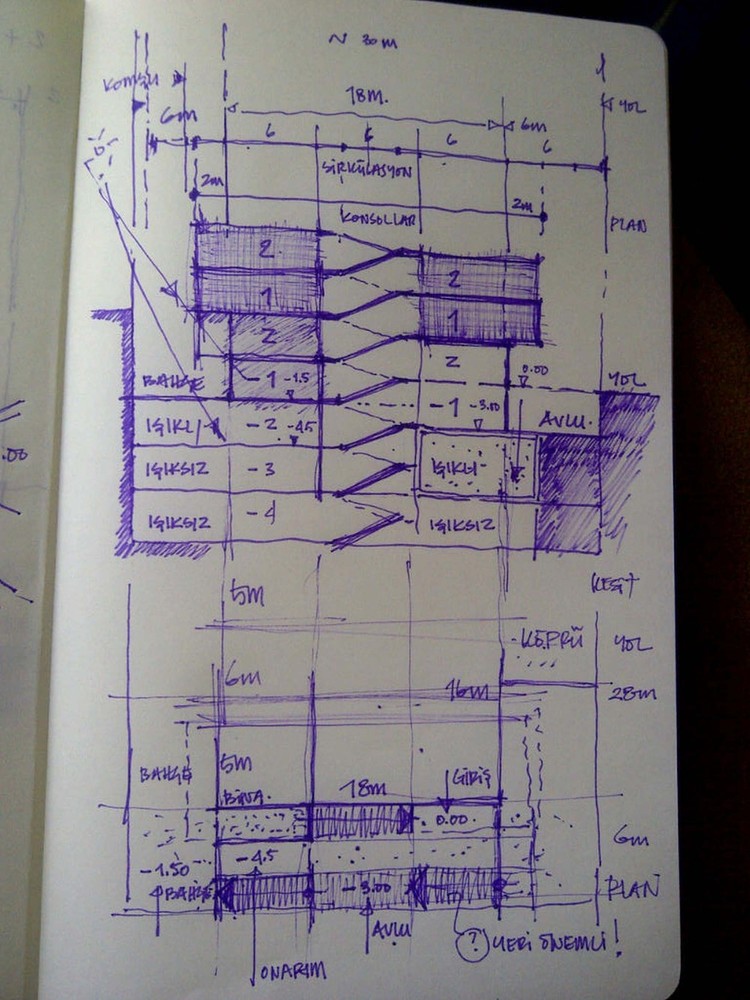 ~ 30m
KOMŞU
18m.
YOL
6m
6m
6 6 6 6
SİRKÜLASYON
2m
2m
KONSOLLAR
PLAN
2
2
1
1
2
2
0.00
BAHÇE -1 -1.5
YOL
-1 -3.00
AVLU
IŞIKLI -2 -4.5
IŞIKSIZ -3
IŞIKLI
IŞIKSIZ -4
IŞIKSIZ
KESİT
5m
KÖPRÜ
YOL
6m
16m
28m
BAHÇE
5m
18m
GİRİŞ
BİNA
0.00
6m
-4.5
-1.50
BAHÇE
-3.00
PLAN
AVLU
? YERİ ÖNEMLİ!
ONARIM
.00